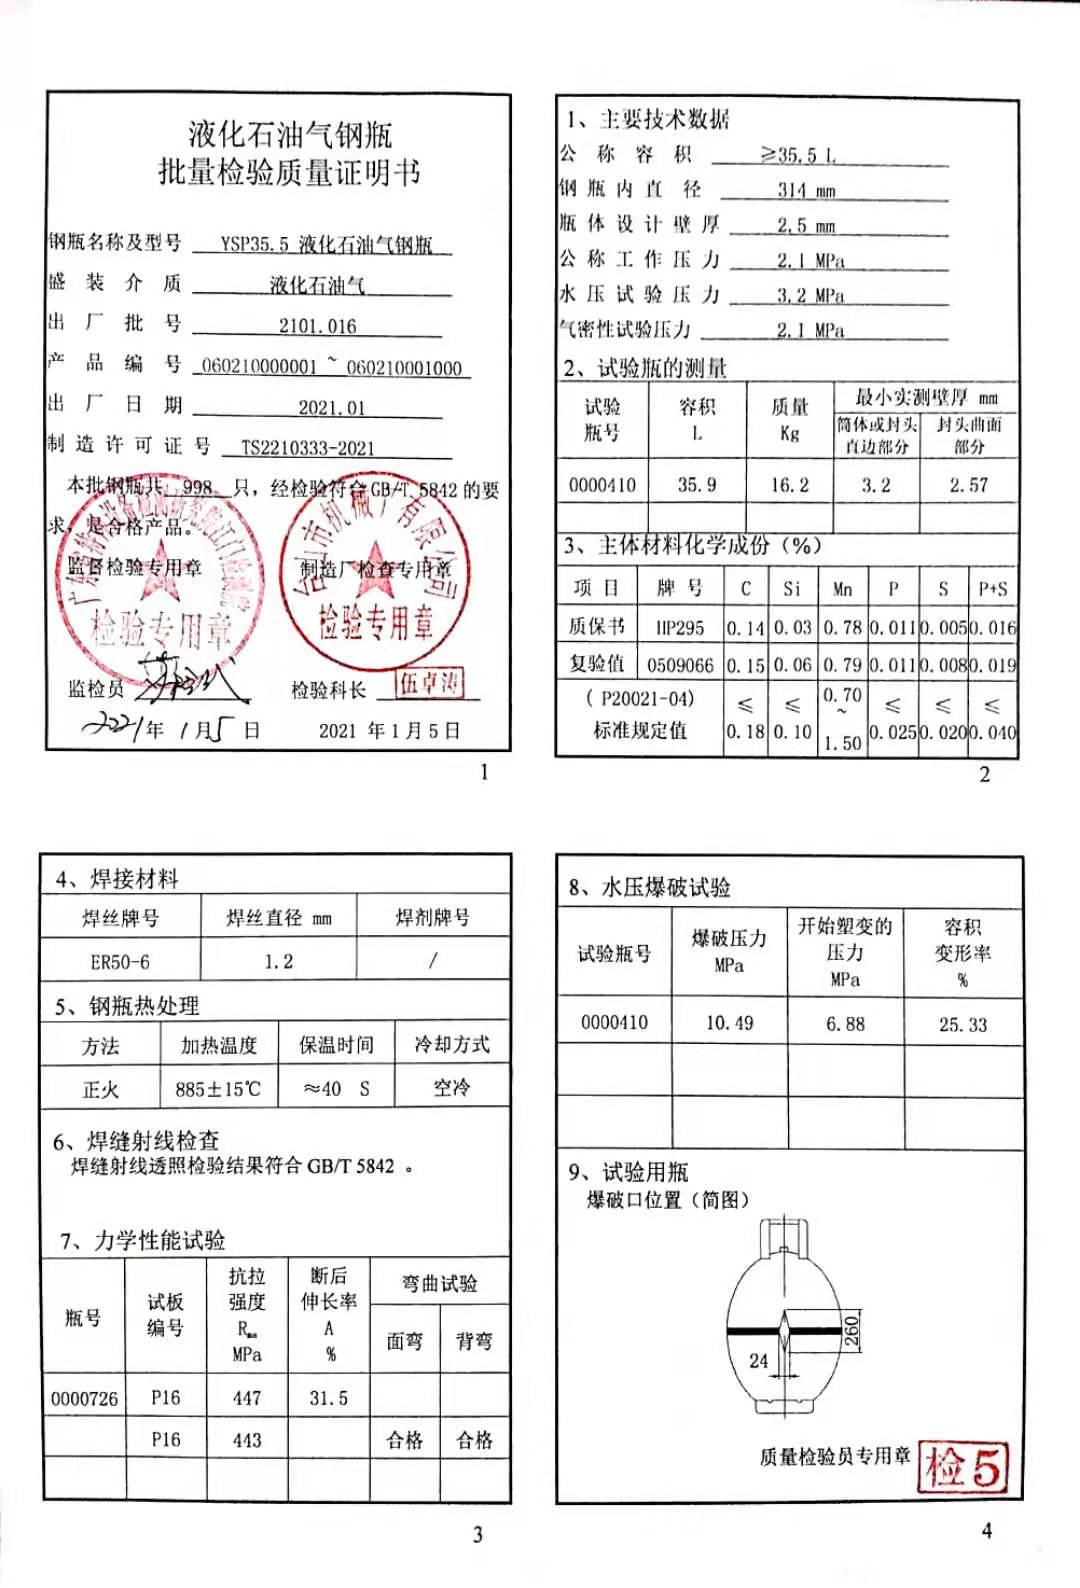 液化石油气钢瓶
批量检验质量证明书
钢瓶名称及型号 YSP35.5 液化石油气钢瓶
盛装介质 液化石油气
出厂批号 2101.016
产品编号 060210000001 ~ 060210001000
出厂日期 2021.01
制造许可证号 TS2210333-2021
本批钢瓶共 998 只，经检验符合 GB/T 5842 的要
求，是合格产品。
监督检验专用章 制造厂检查专用章
检验专用章
台山市机械厂有限公司
检验专用章
监检员 检验科长 伍卓涛
2021年 1月5日 2021 年 1 月 5 日
1
1、主要技术数据
公称容积 ≥35.5 L
钢瓶内直径 314 mm
瓶体设计壁厚 2.5 mm
公称工作压力 2.1 MPa
水压试验压力 3.2 MPa
气密性试验压力 2.1 MPa
2、试验瓶的测量
试验瓶号 容积 L 质量 Kg 最小实测壁厚 mm
筒体或封头直边部分 封头曲面部分
0000410 35.9 16.2 3.2 2.57
3、主体材料化学成份（%）
项目 牌号 C Si Mn P S P+S
质保书 HP295 0.14 0.03 0.78 0.011 0.005 0.016
复验值 0509066 0.15 0.06 0.79 0.011 0.008 0.019
( P20021-04)
标准规定值 ≤0.18 ≤0.10 0.70~1.50 ≤0.025 ≤0.020 ≤0.040
2
4、焊接材料
焊丝牌号 焊丝直径 mm 焊剂牌号
ER50-6 1.2 /
5、钢瓶热处理
方法 加热温度 保温时间 冷却方式
正火 885±15℃ ≈40 S 空冷
6、焊缝射线检查
焊缝射线透照检验结果符合 GB/T 5842 。
7、力学性能试验
瓶号 试板编号 抗拉强度 Rm MPa 断后伸长率 A % 弯曲试验
面弯 背弯
0000726 P16 447 31.5
P16 443 合格 合格
3
8、水压爆破试验
试验瓶号 爆破压力 MPa 开始塑变的压力 MPa 容积变形率 %
0000410 10.49 6.88 25.33
9、试验用瓶
爆破口位置（简图）
260
24
质量检验员专用章 检5
4